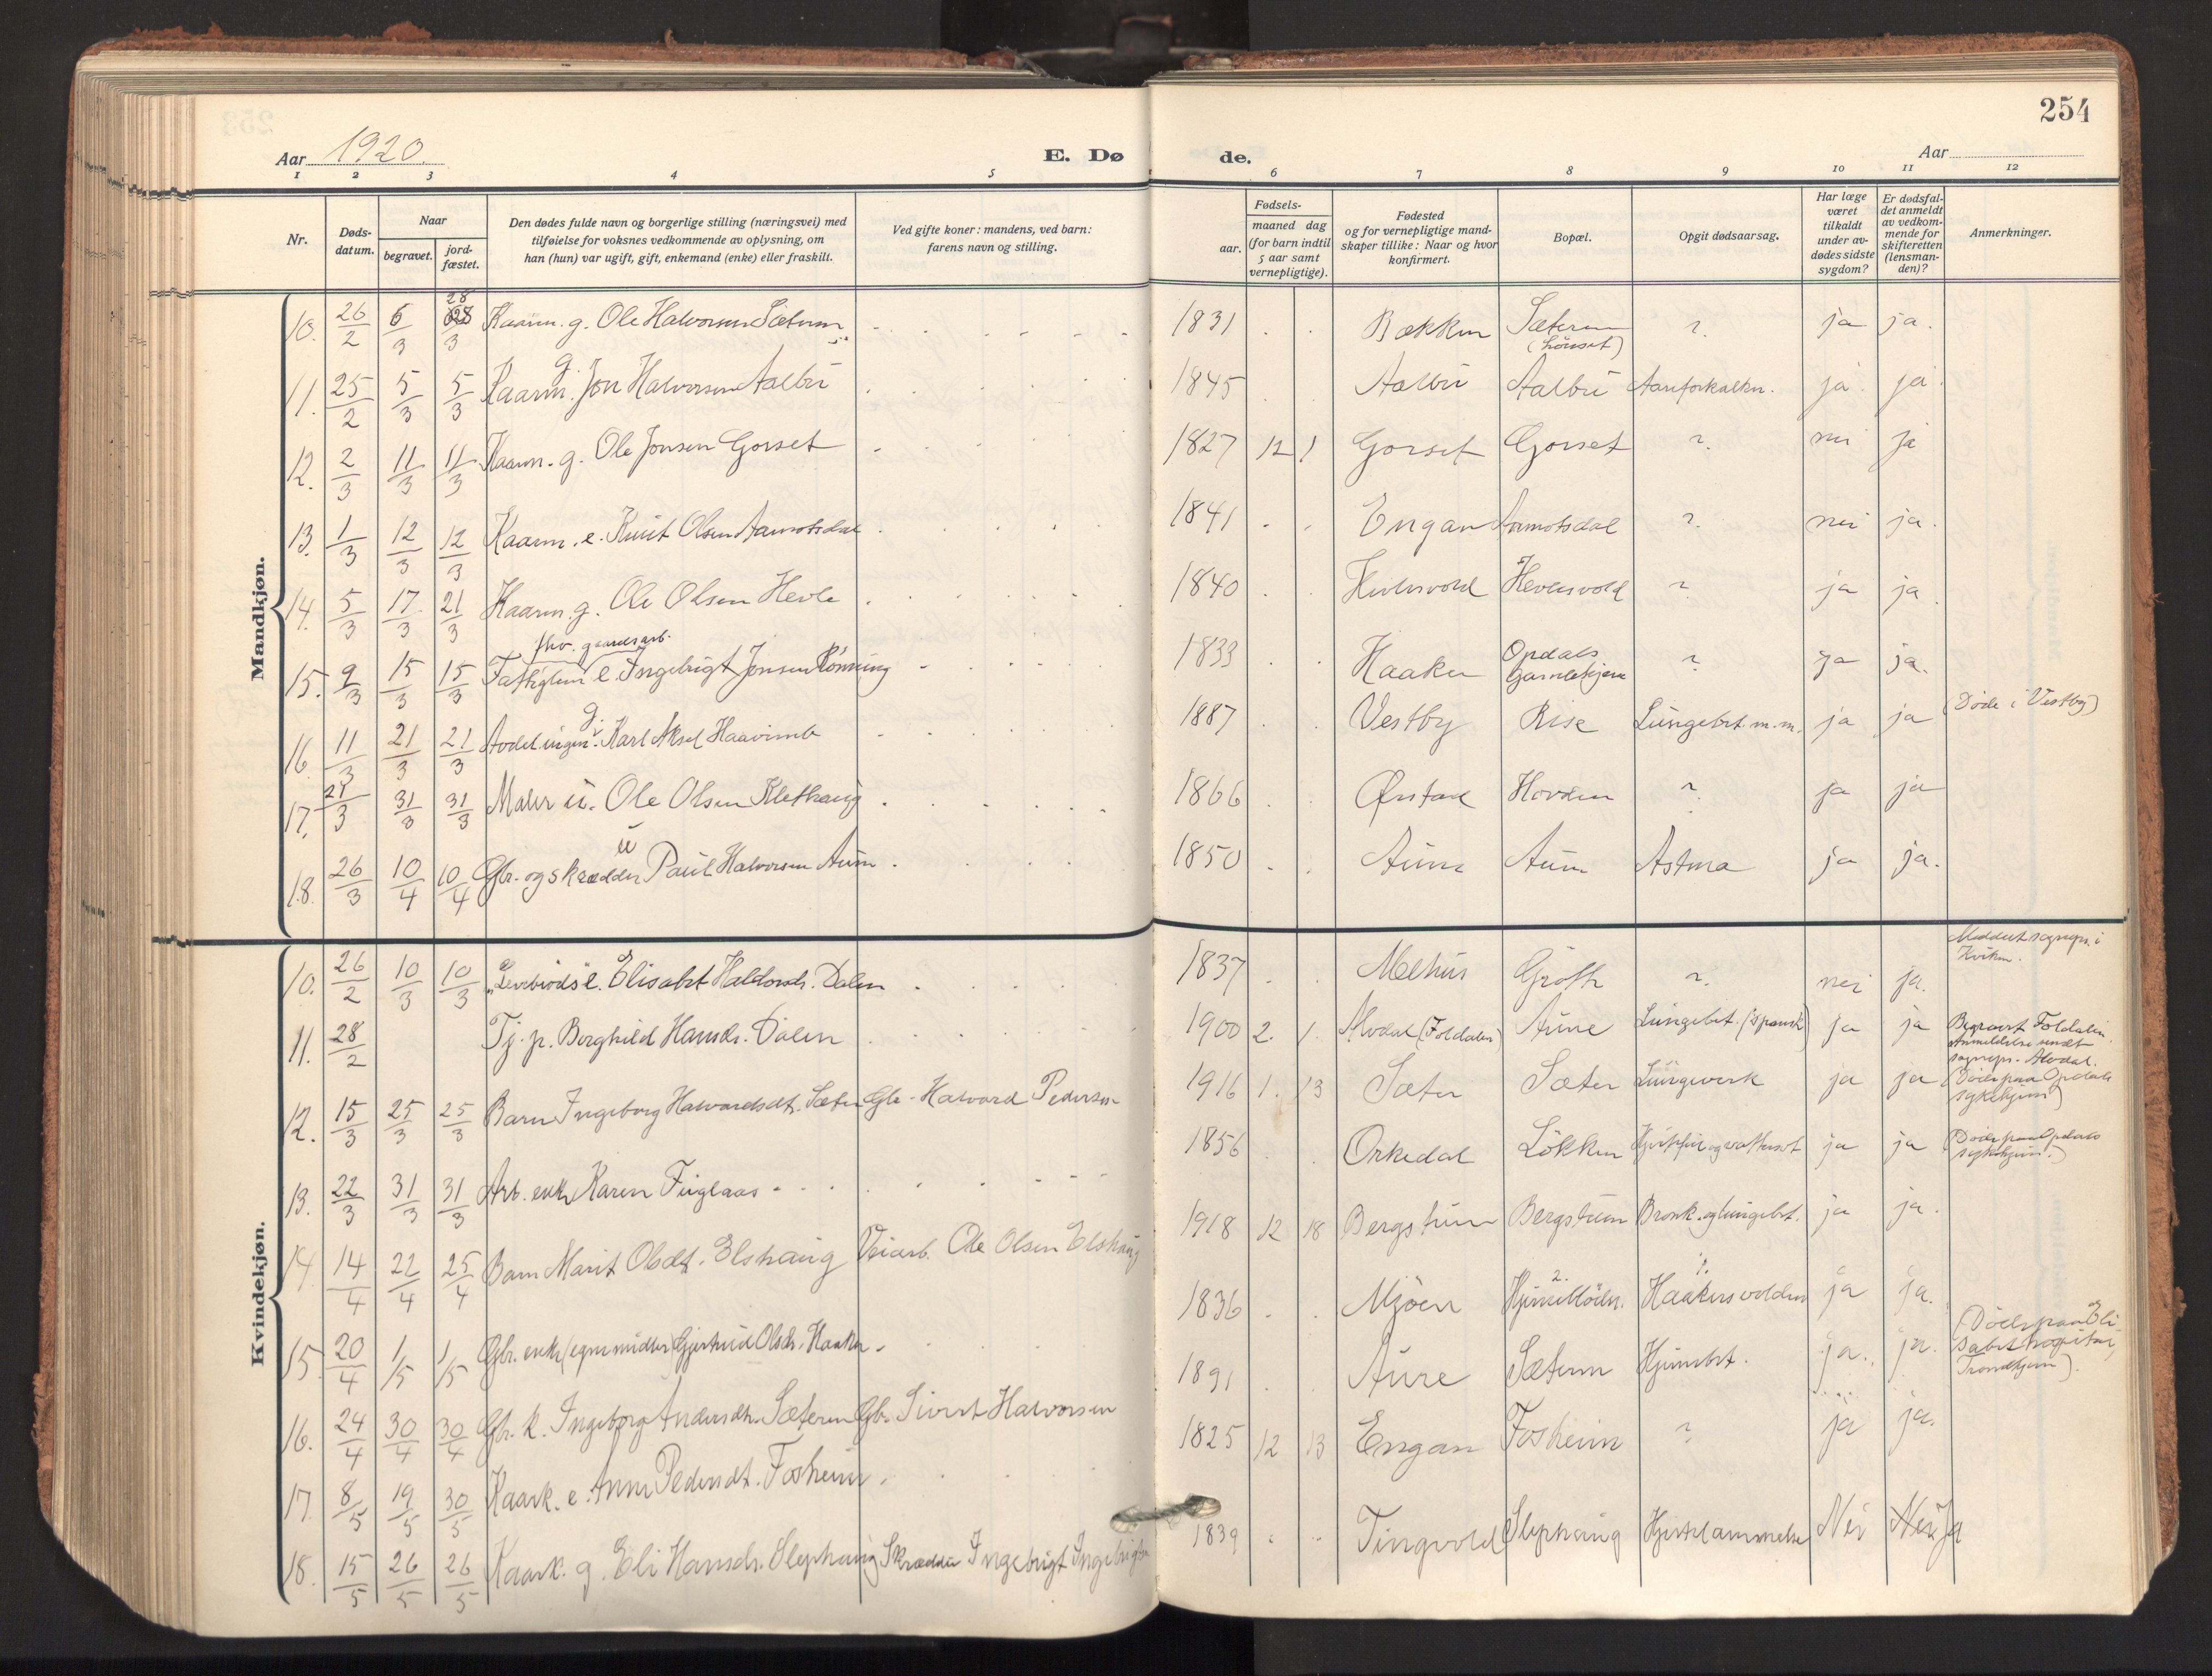 254
Aar 1920.
E. Dø
de.
Aar
1 2 3 4 5 6 7 8 9 10 11 12
Nr.
Døds-
datum.
Naar
begravet.
jord-
fæstet.
Den dødes fulde navn og borgerlige stilling (næringsvei) med
tilføielse for voksnes vedkommende av oplysning, om
han (hun) var ugift, gift, enkemand (enke) eller fraskilt.
Ved gifte koner: mandens, ved barn:
farens navn og stilling.
Fødsels-
aar.
maaned dag
(for barn indtil
5 aar samt
vernepligtige).
Fødested
og for vernepligtige mand-
skaper tillike: Naar og hvor
konfirmert.
Bopæl.
Opgit dødsaarsag.
Har læge
været
tilkaldt
under av-
dødes sidste
sygdom?
Er dødsfal-
det anmeldt
av vedkom-
mende for
skifteretten
(lensman-
den)?
Anmerkninger.
Mandkjøn.
10. 26/2 6/3 28/3 Kaarm. g. Ole Halvorsen Sæteren 1831 Bækken Sæteren (Lönset) ? ja ja.
11. 25/2 5/3 5/3 Kaarm. g. Jon Halvorsen Aalbu 1845 Aalbu Aalbu Aareforkalkn. ja ja.
12. 2/3 11/3 11/3 Kaarm. g. Ole Jonsen Gorset 1827 12 1 Gorset Gorset ? nei ja
13. 1/3 12/3 12/3 Kaarm. e. Knut Olsen Aamotsdal 1841 Engan Aamotsdal ? nei ja.
14. 5/3 17/3 21/3 Kaarm. g. Ole Olsen Hevle 1840 Hevlesvold Hevlesvold ? ja ja.
15. 9/3 15/3 15/3 fhv. gaardsarb. Fattiglem e. Ingebrigt Jonsen Rönning 1833 Haaker Opdals Gamlehjem ? ja ja.
16. 11/3 21/3 21/3 Avdelingsen. g. Karl Aksel Haavimb 1887 Vestby Rise Lungebet. m. m. ja ja (Döde i Vestby)
17. 27/3 31/3 31/3 Maler u. Ole Olsen Klethaug 1866 Ørstad Hovden ? ja ja
18. 26/3 10/4 10/4 Gbr. og skrædder u Paul Halvorsen Aune 1850 Aune Aune Astma ja ja.
Kvindekjøn.
10. 26/2 10/3 10/3 e. Elisabet Haldorsdt. Dalen 1837 Melhus Gröth ? nei ja. Meddelt sognepr. i Kvikne.
11. 28/2 Tj. p. Borghild Hansdt. Dalen 1900 2. 1. Alvdal (Foldalen) Aune Lungebet. (spansk) ja ja Begravet Foldalen. Anmeldelse sendt sognepr. Alvdal.
12. 15/3 25/3 25/3 Barn Ingeborg Halvardsdt. Sæter Gbr. Halvard Pedersen 1916 1. 13 Sæter Sæter Lungeverk ja ja (Döde paa Opdals sykehjem)
13. 22/3 31/3 31/3 Arb. enke Karen Fuglaas 1856 Orkedal Lökken Hjertefeil og vattersot ja ja (Döde paa Opdals sykehjem.)
14. 14/4 22/4 25/4 Barn Marit Olsdt. Elshaug Veiarb. Ole Olsen Elshaug 1918 12 18 Bergstuen Bergstuen Bronk. og lungebet. ja ja.
15. 20/4 1/5 1/5 Gbr. enke (egne midler) Gjertrud Olsdt. Haaker 1836 Mjöen 2. 1. Haakersvolden ja ja.
16. 24/4 30/4 30/4 Gbr. k. Ingeborg Andersdt. Sæteren Gbr. Sivert Halvorsen 1891 Aune Sæteren Hjernebet. ja. ja. (Döde paa Elisabet hospital, Trondhjem).
17. 8/5 19/5 30/5 Kaark. e. Anne Pedersdt. Fosheim 1825 12 13 Engan Fosheim ? ja ja.
18. 15/5 26/5 26/5 Kaark. g. Eli Hansdt. Slephaug Skrædder Ingebrigt Ingebrigtsen 1839 Tingvold Slephaug Hjertelammelse Nei Nei Ja